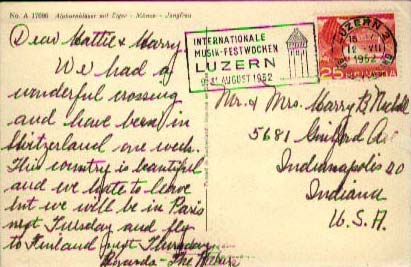 No. A 17086 Alphornbläser mit Eiger - Mönch - Jungfrau
Dear Mattie & Harry
We had a
wonderful crossing
and have been in
Switzerland one week.
This country is beautiful
and we hate to leave
but we will be in Paris
next Tuesday and fly
to Finland next Thursday
The
INTERNATIONALE
MUSIK-FESTWOCHEN
LUZERN
AUGUST 1952
LUZERN 2
12 - VII
1952
25 HELVETIA
Mr. & Mrs. Harry B.
5681 Guilford Ave
Indianapolis 20
Indiana
U.S.A.